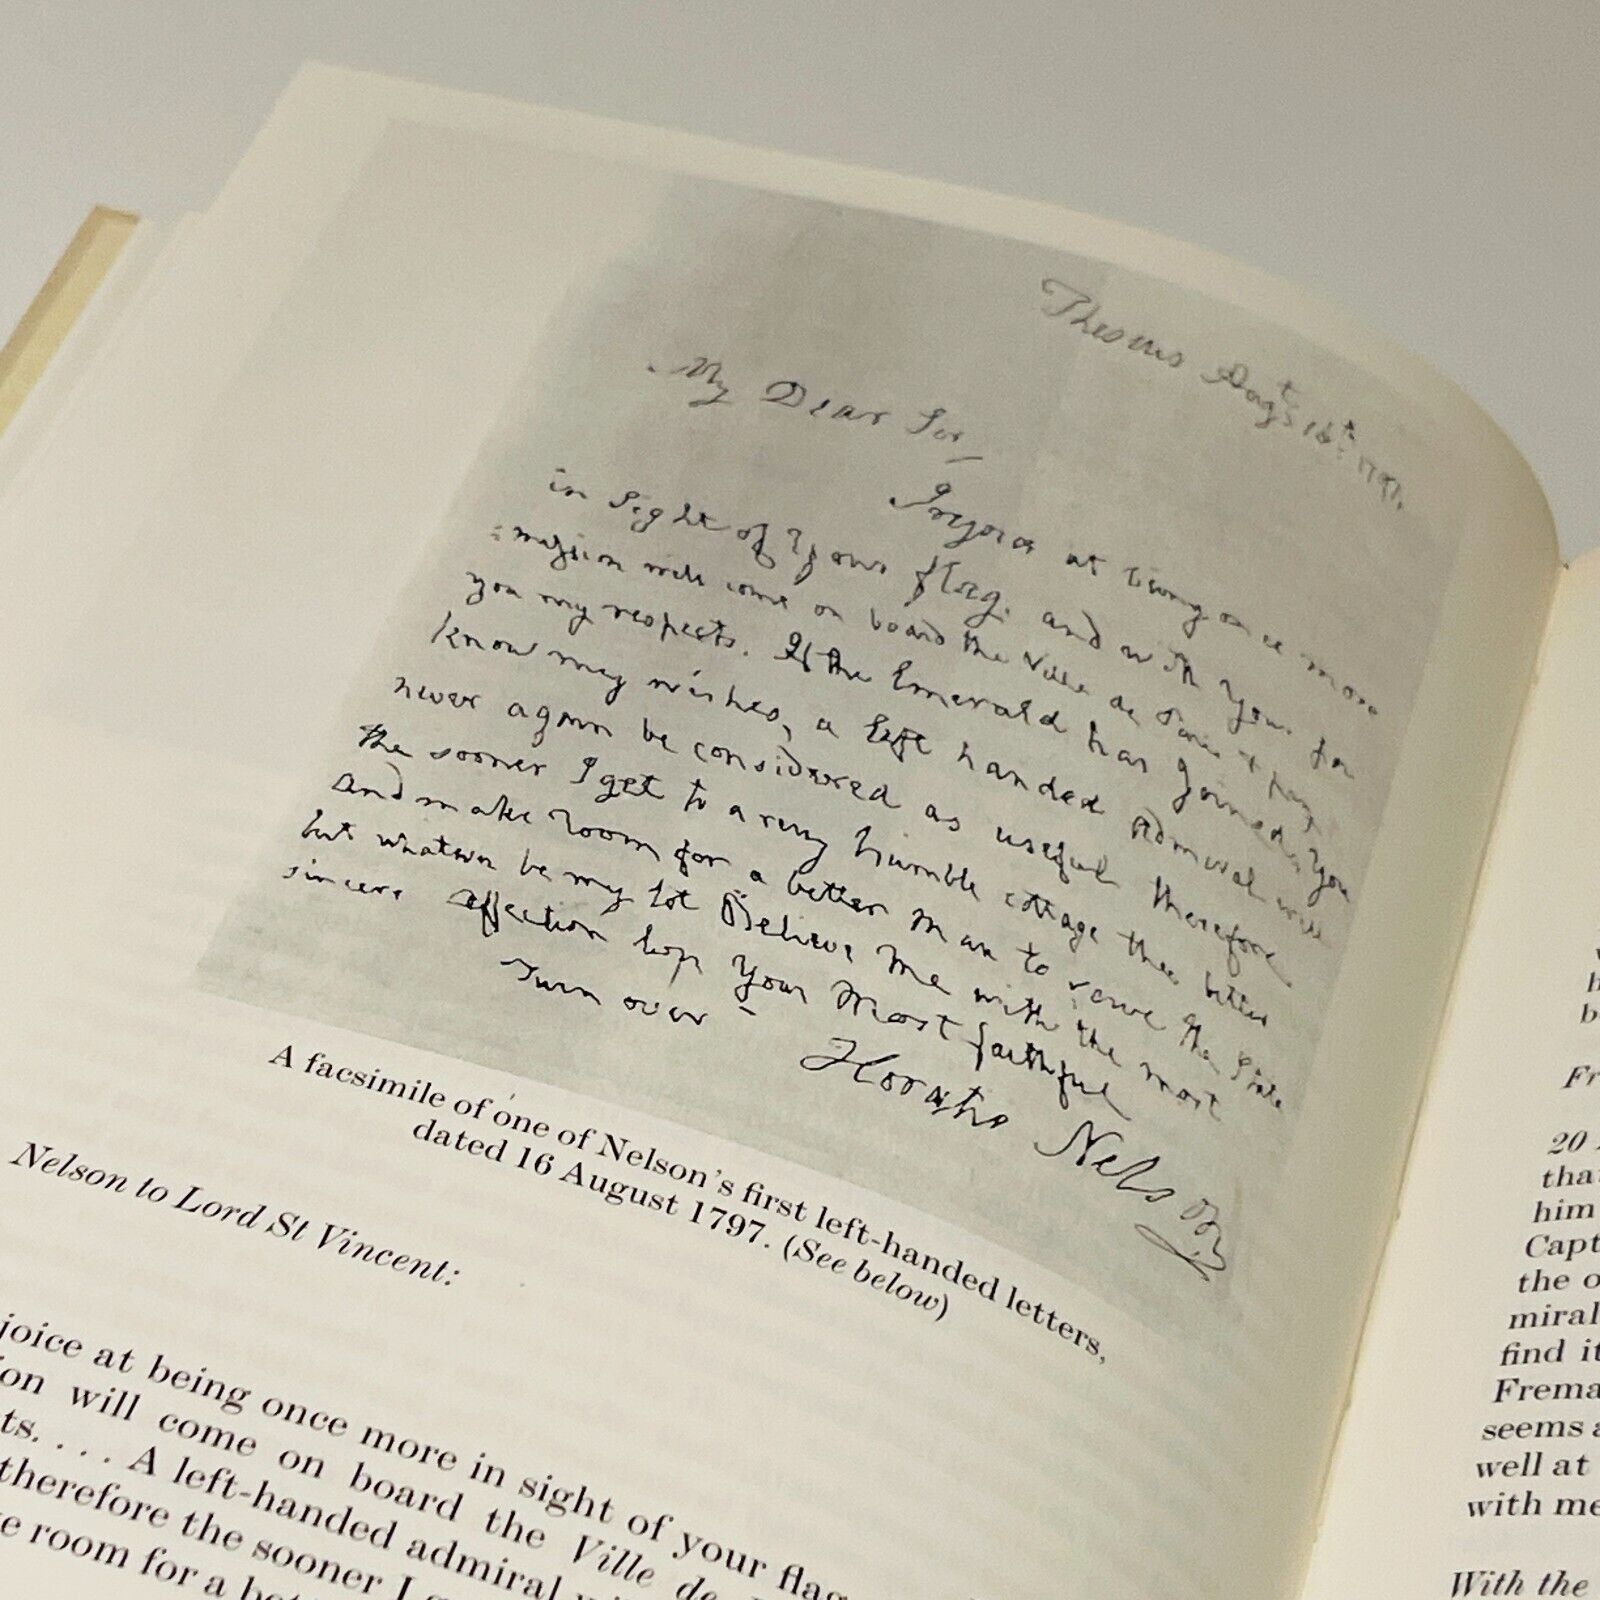 Theseus Augt: 16th: 1797.
My Dear Sir
I rejoice at being once more
in sight of your flag, and with your per
:mission will come on board the Ville de Paris & pay
you my respects. If the Emerald has joined, you
know my wishes, a left handed Admiral will
never again be considered as useful therefore
the sooner I get to a very humble cottage the better
and make room for a better man to serve the State
but whatever be my lot Believe me with the most
sincere affection Ever Your Most faithful
Turn over -
Horatio Nelson
A facsimile of one of Nelson's first left-handed letters,
dated 16 August 1797. (See below)
Nelson to Lord St Vincent:
joice at being once more in sight of your flag
ion will come on board the Ville de
ts. . . . A left-handed admiral
therefore the sooner I
e room for a
Fr
20
that
him
Capt
the o
miral
find it
Frema
seems a
well at
with me
With the